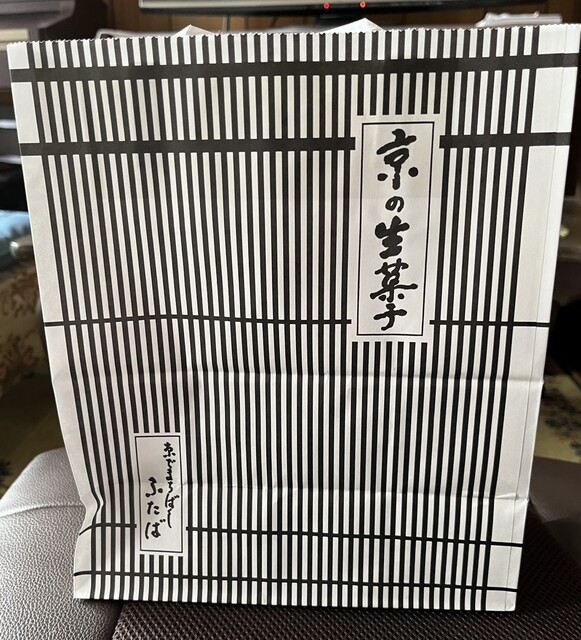 京の生菓子
京でまちばし
ふたば